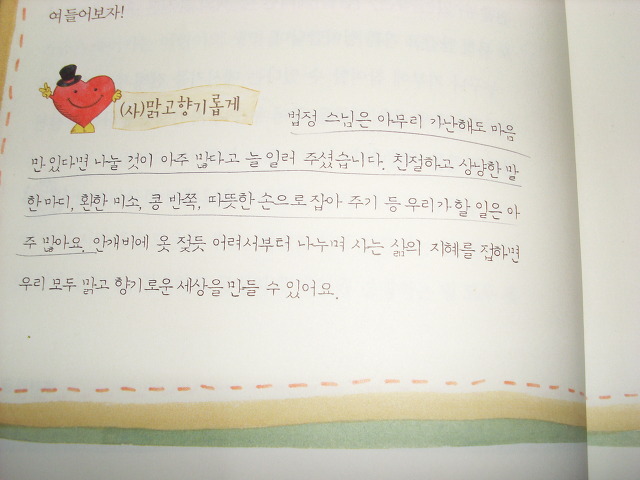 여들어보자!
(사)맑고향기롭게
법정 스님은 아무리 가난해도 마음
만 있다면 나눌 것이 아주 많다고 늘 일러 주셨습니다. 친절하고 상냥한 말
한 마디, 환한 미소, 콩 반쪽, 따뜻한 손으로 잡아 주기 등 우리가 할 일은 아
주 많아요. 안개비에 옷 젖듯 어려서부터 나누며 사는 삶의 지혜를 접하면
우리 모두 맑고 향기로운 세상을 만들 수 있어요.